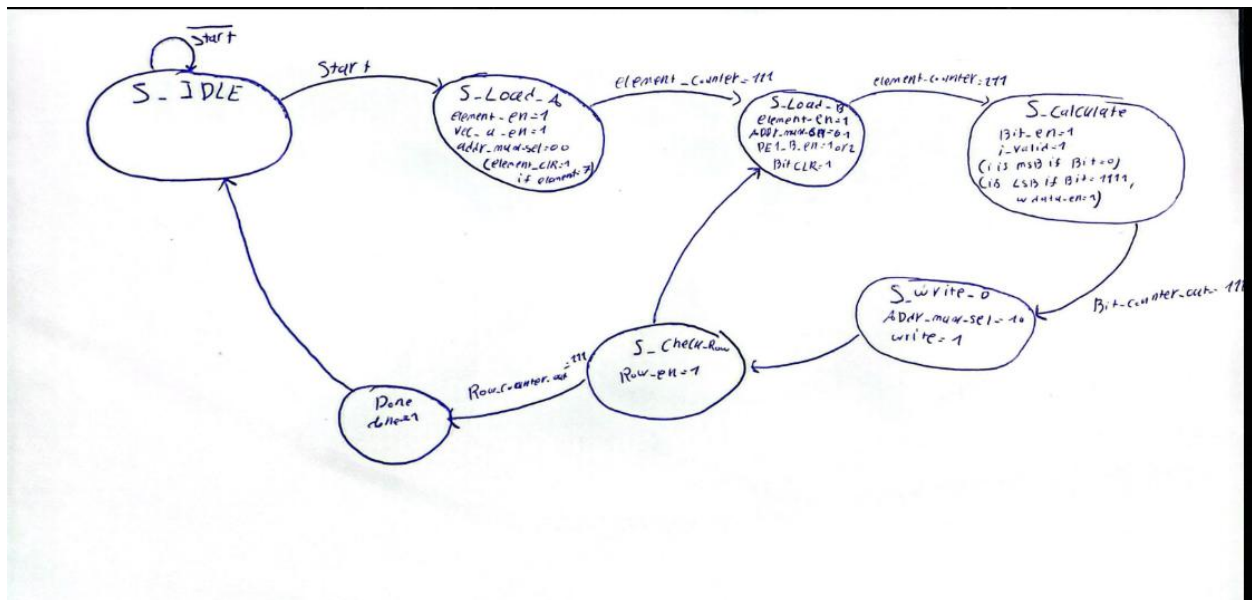 Start
S_IDLE
Start
S_Load_A
element_en=1
vec_a_en=1
addr_mux_sel=00
(element_CLR=1
if element=7)
element_counter=111
S_Load_B
element_en=1
ADDr_mux_sel=01
PE1_B_en=1 or 2
Bit CLR=1
element_counter=111
S_Calculate
Bit_en=1
i_valid=1
(i is msB if Bit=0)
(is LSB if Bit=1111,
wdata_en=1)
Bit_counter_out=111
S_write_0
ADDr_mux_sel=10
write=1
S_Check_Row
Row_en=1
Row_counter_out=111
Done
done=1